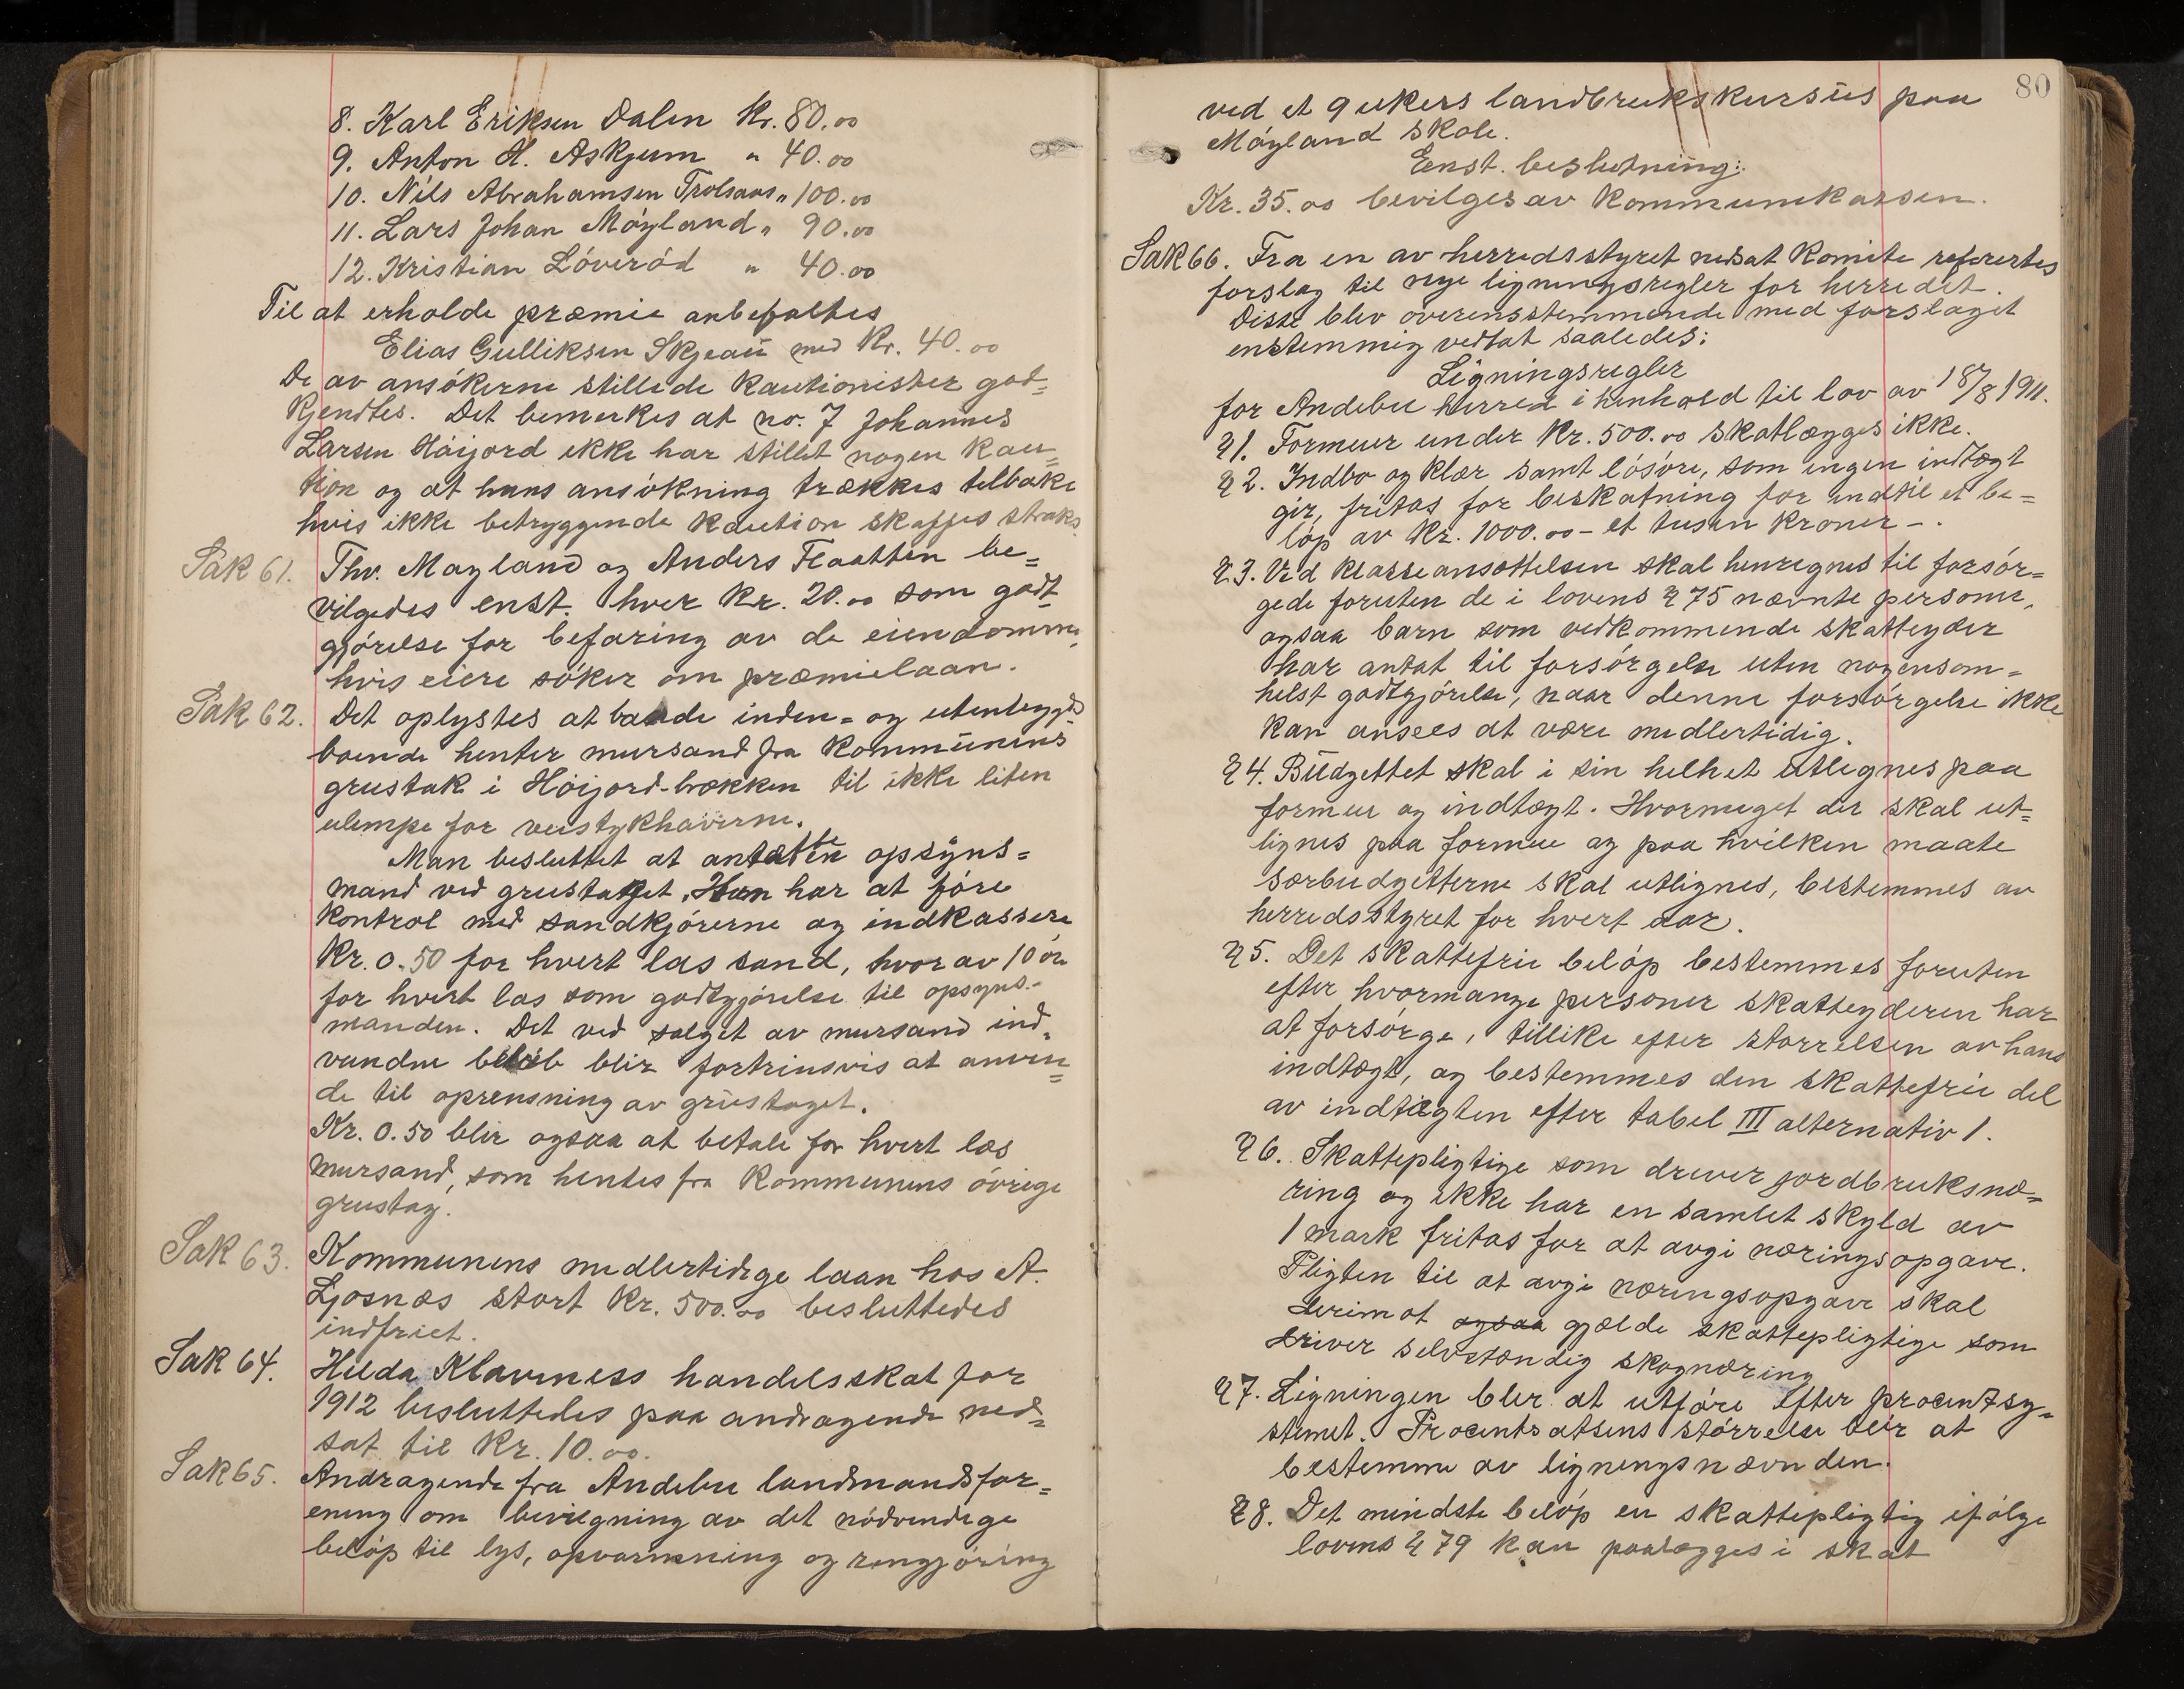 8. Karl Eriksen Dalen Kr. 80.00
9. Anton H. Askjem " 40.00
10. Nils Abrahamsen Trolsaas " 100.00
11. Lars Johan Móyland " 90.00
12. Kristian Lóveród " 40.00
Til at erholde præmie anbefaltes
Elias Gulliksen Skjeau med Kr. 40.00
De av ansókerne stillede kautionister god=
kjendtes. Det bemerkes at no. 7 Johannes
Larsen Hóijord ikke har stillet nogen kau=
tion og at hans ansókning trækkes tilbake
hvis ikke betryggende kaution skaffes straks.
Sak 61. Thv. Moyland og Anders Flaatten be=
vilgedes enst. hver Kr. 20.00 som godt
gjórelse for befaring av de eiendomme,
hvis eiere sóker om præmielaan.
Sak 62. Det oplystes at baade inden= og utenbygds
boende henter mursand fra kommunens
grustak i Hóijord-bækken til ikke liten
ulempe for veistykhaverne.
Man besluttet at antatte en opsyns=
mand ved grustaget. Han har at fóre
kontrol med sandkjórerne og indkassere
Kr. 0.50 for hvert las sand, hvorav 10 óre
for hvert las som godtgjórelse til opsyns-
manden. Det ved salget av mursand ind=
vundne belób blir fortrinsvis at anven=
de til oprensning av grustaget.
Kr. 0.50 blir ogsaa at betale for hvert las
mursand, som hentes fra kommunens óvrige
grustag.
Sak 63. Kommunens midlertidige laan hos A.
Ljosnæs stort Kr. 500.00 besluttedes
indfriet.
Sak 64. Hilda Klavness handelsskat for
1912 besluttedes paa andragende ned=
sat til Kr. 10.00.
Sak 65. Andragende fra Andebu landmandsfor=
ening om bevilgning av det nódvendige
belóp til lys, opvarmning og rengjóring
80
ved et 9 ukers landbrukskursus paa
Móyland skole.
Enst. beslutning:
Kr. 35.00 bevilges av kommunekassen.
Sak 66. Fra en av herredsstyret nedsat komite refertes
forslag til nye ligningsregler for herredet.
Disse blev overensstemmende med forslaget
enstemmig vedtat saaledes:
Ligningsregler
for Andebu herred i henhold til lov av 18/8 1911.
§ 1. Formuer under Kr. 500.00 skatlægges ikke.
§ 2. Indbo og klær samt lósóre, som ingen indtægt
gir, fritas for beskatning for indtil et be=
lóp av Kr. 1000.00 - et tusen kroner -.
§ 3. Ved klasseansættelsen skal henregnes til forsór=
gede foruten de i lovens § 75 nævnte persone,
ogsaa barn som vedkommende skatteyder
har antat til forsórgelse uten nogensom=
helst godtgjórelse, naar denne forsórgelse ikke
kan ansees at være midlertidig.
§ 4. Budgettet skal i sin helhet utlignes paa
formue og indtægt. Hvormeget der skal ut=
lignes paa formue og paa hvilken maate
særbudgetterne skal utlignes, bestemmes av
herredsstyret for hvert aar.
§ 5. Det skattefrie belóp bestemmes foruten
efter hvormange personer skatteyderen har
at forsórge, tillike efter storrelsen av hans
indtægt, og bestemmes den skattefrie del
av indtægten efter tabel III alternativ 1.
§ 6. Skattepligtige som driver jordbruksnæ=
ring og ikke har en samlet skyld av
1 mark fritas for at avgi næringsopgave.
Pligten til at avgi næringsopgave skal
derimot ogsaa gjælde skattepligtige som
driver selvstændig skognæring
§ 7. Ligningen blir at utfóre efter procentsy=
stemet. Procentsatsens stórrelse blir at
bestemme av ligningsnævnden.
§ 8. Det mindste belóp en skattepligtig ifólge
lovens § 79 kan paalægges i skat